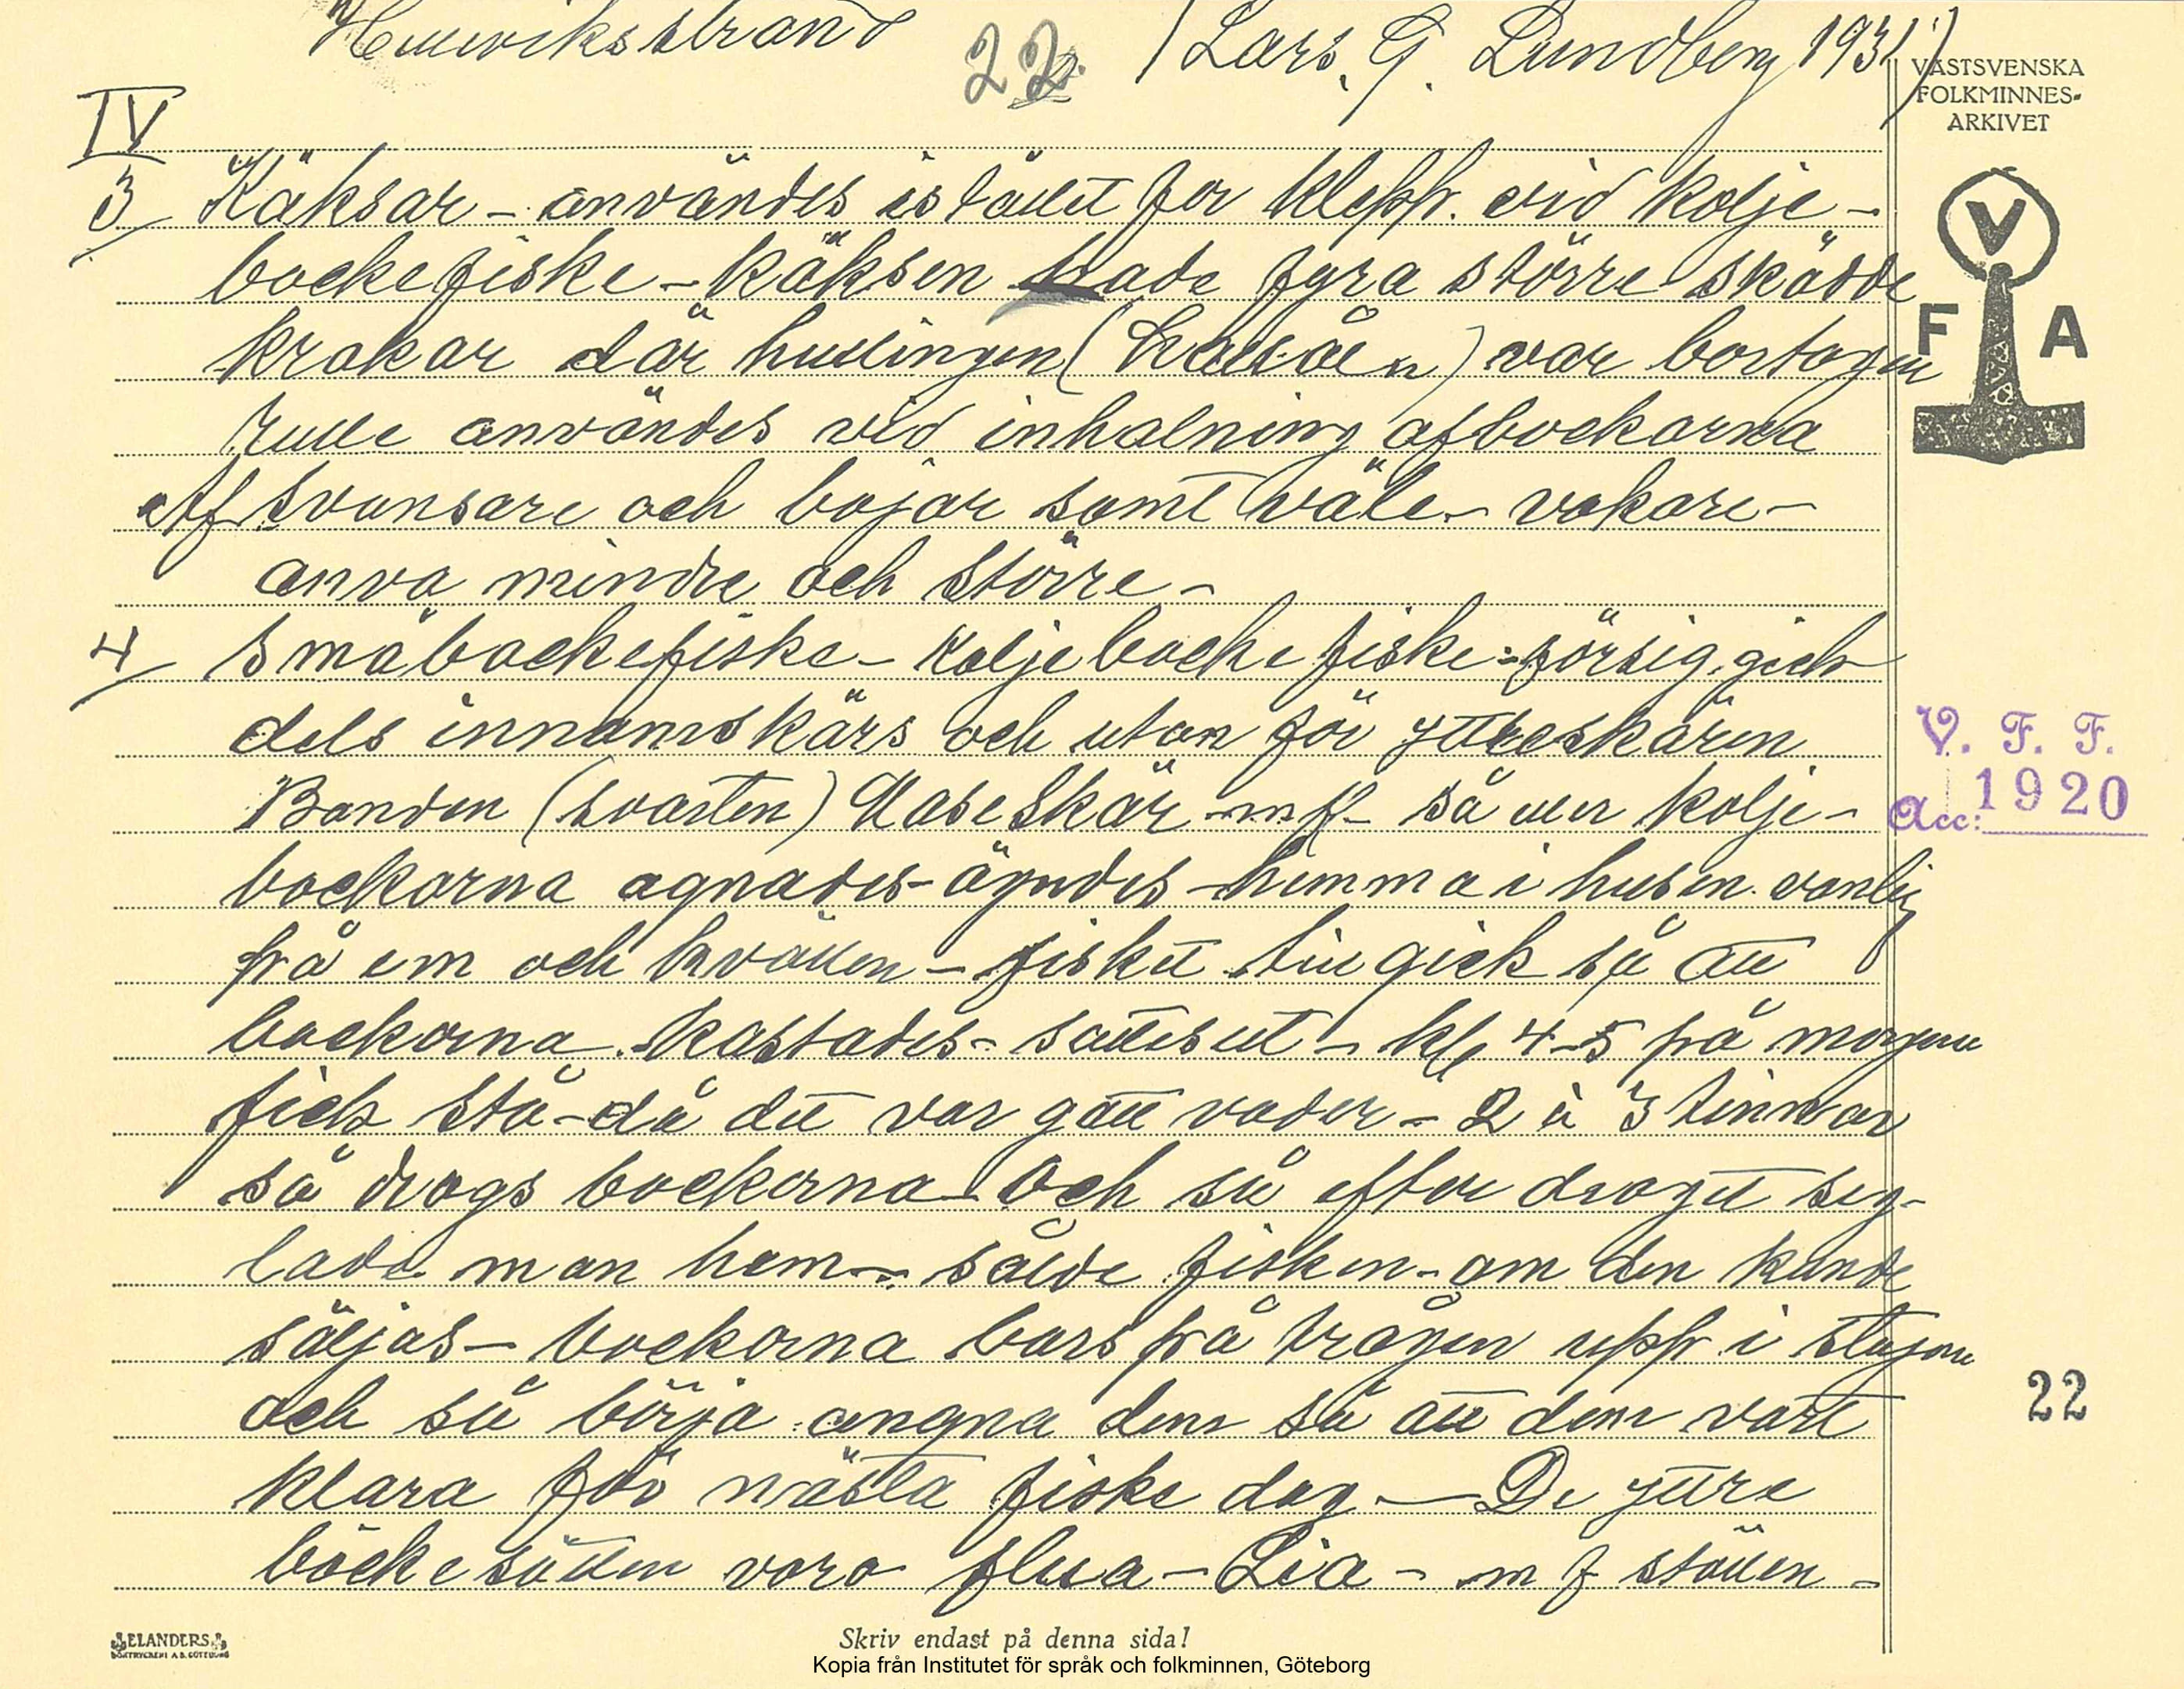 Henriksstrand 22. (Lars. G. Lundberg 1931)
VÄSTSVENSKA
FOLKMINNES-
ARKIVET
V
F A
IV
3 Käksar - användes istället för klepp. vid kolje-
backefiske - käksen hade fyra större skädde
krokar där hullingen ( ) var bortagen
rulle användes vid inhalning af backarna
Af svansare och bojar samt väle - vakare -
anva mindre och större -
4 Småbackefiske - Koljebackefiske - försig. gick
dels innanskärs och utan för yttreskären
Banden (svarten) Maseskär - m fl - så väl kolje-
backarna agnades - ägndes - hemma i husen. vanlig
på em och kvällen - fisket tillgick så att
backarna kastades - sattes ut - kl 4-5 på morgonen
fick stå - då det var gått vader - 2 à 3 timmar
så drogs backarna - Och så efter draget seg-
lade man hem - sålde fisken - om den kunde
säljas - backarna bars på trågen upp i stugan
och så börja angna dem så att dem vart
klara för nästa fiske dag. — De yttre
backesätten voro flua - Lia - m f ställen -
V. F. F.
Acc: 1920
22
ELANDERS
BOKTRYCKERI A.B. GÖTEBORG
Skriv endast på denna sida!
Kopia från Institutet för språk och folkminnen, Göteborg